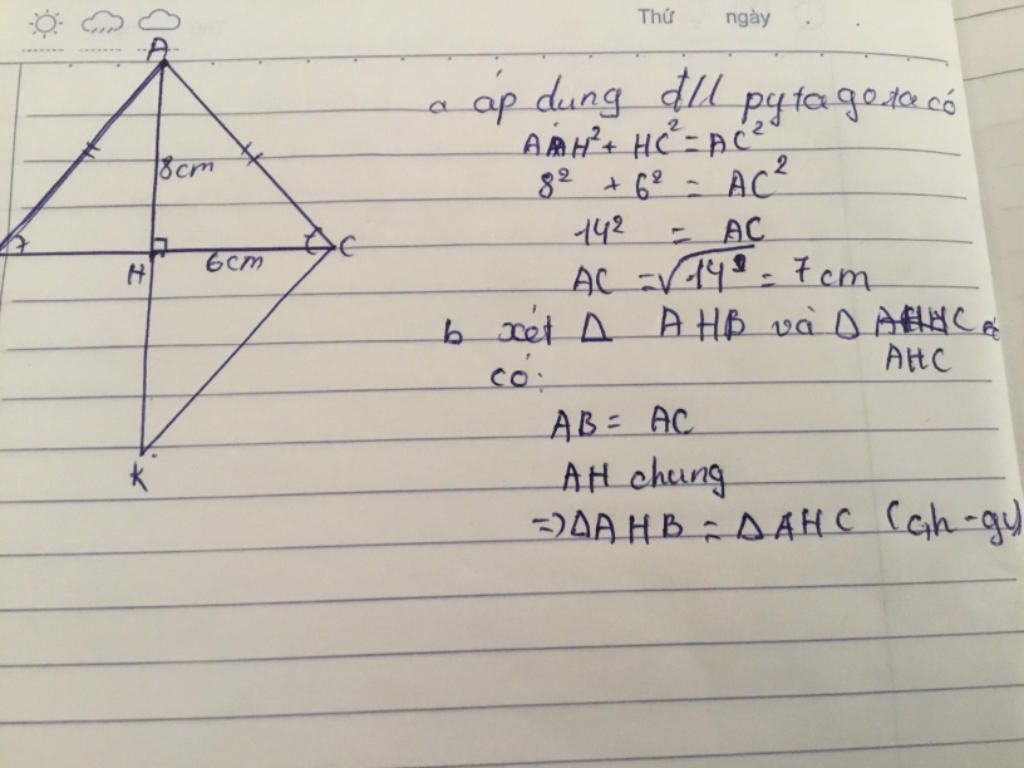 Thứ ngày
A
8cm
H
6cm
C
K
a áp dung đll pytago ta có
AH² + HC² = AC²
8² + 6² = AC²
14² = AC
AC = √14² = 7cm
b xét Δ AHB và Δ
AHC
có:
AB = AC
AH chung
=> ΔAHB = ΔAHC (ch - gv)